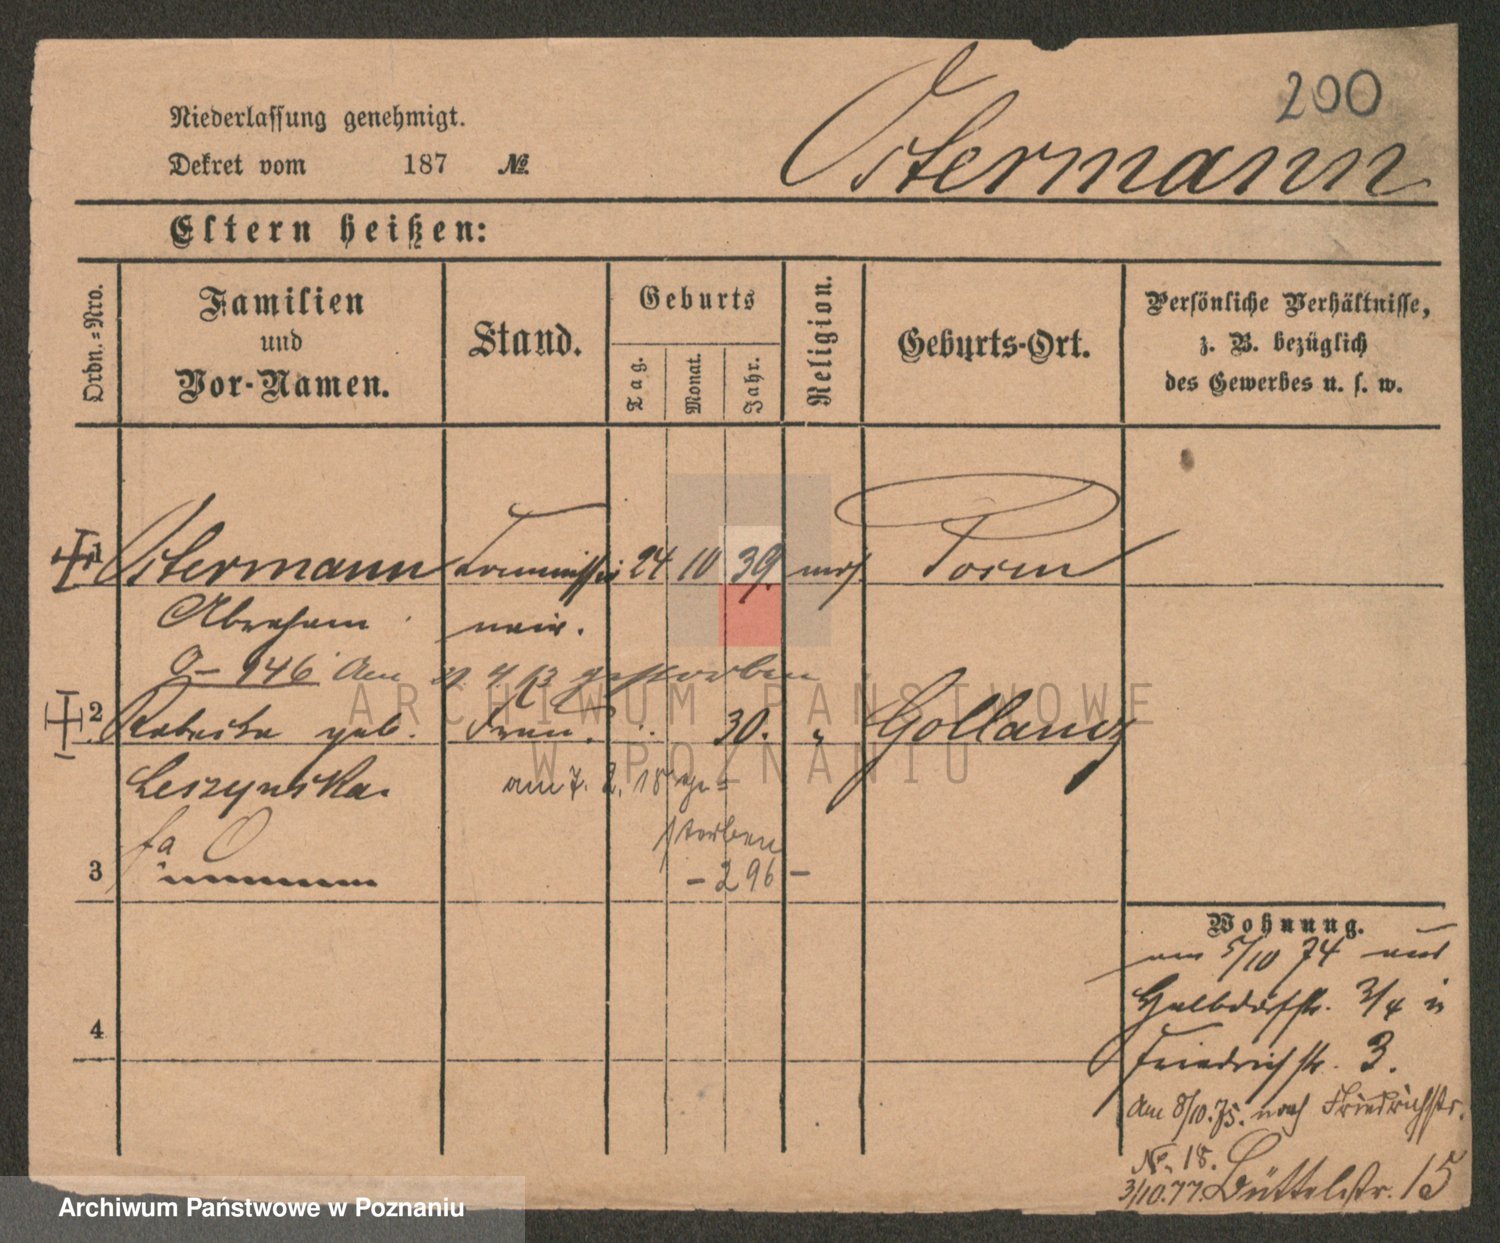 200
Ostermann
Niederlassung genehmigt.
Dekret vom 187 №
Eltern heißen:
Ordn.=Nro.
Familien
und
Vor-Namen.
Stand.
Geburts
Tag.
Monat.
Jahr.
Religion.
Geburts-Ort.
Persönliche Verhältnisse,
z. B. bezüglich
des Gewerbes u. s. w.
1 Ostermann Commissio 24 10 39. mos Posen
Abraham nair.
946 Am gestorben
2 Rebecka geb. Frau. 30. " Gollancz
Leszynska.
am 7. 2. 18 ge=
storben
- 296 -
3
4
Wohnung.
am 5/10 74 aus
Halbdorfstr. 3/4 in
Friedrichstr. 3.
Am 8/10.75. nach Friedrichstr.
No. 18.
3/10.77. Büttelstr. 15
ARCHIWUM PAŃSTWOWE
W POZNANIU
Archiwum Państwowe w Poznaniu